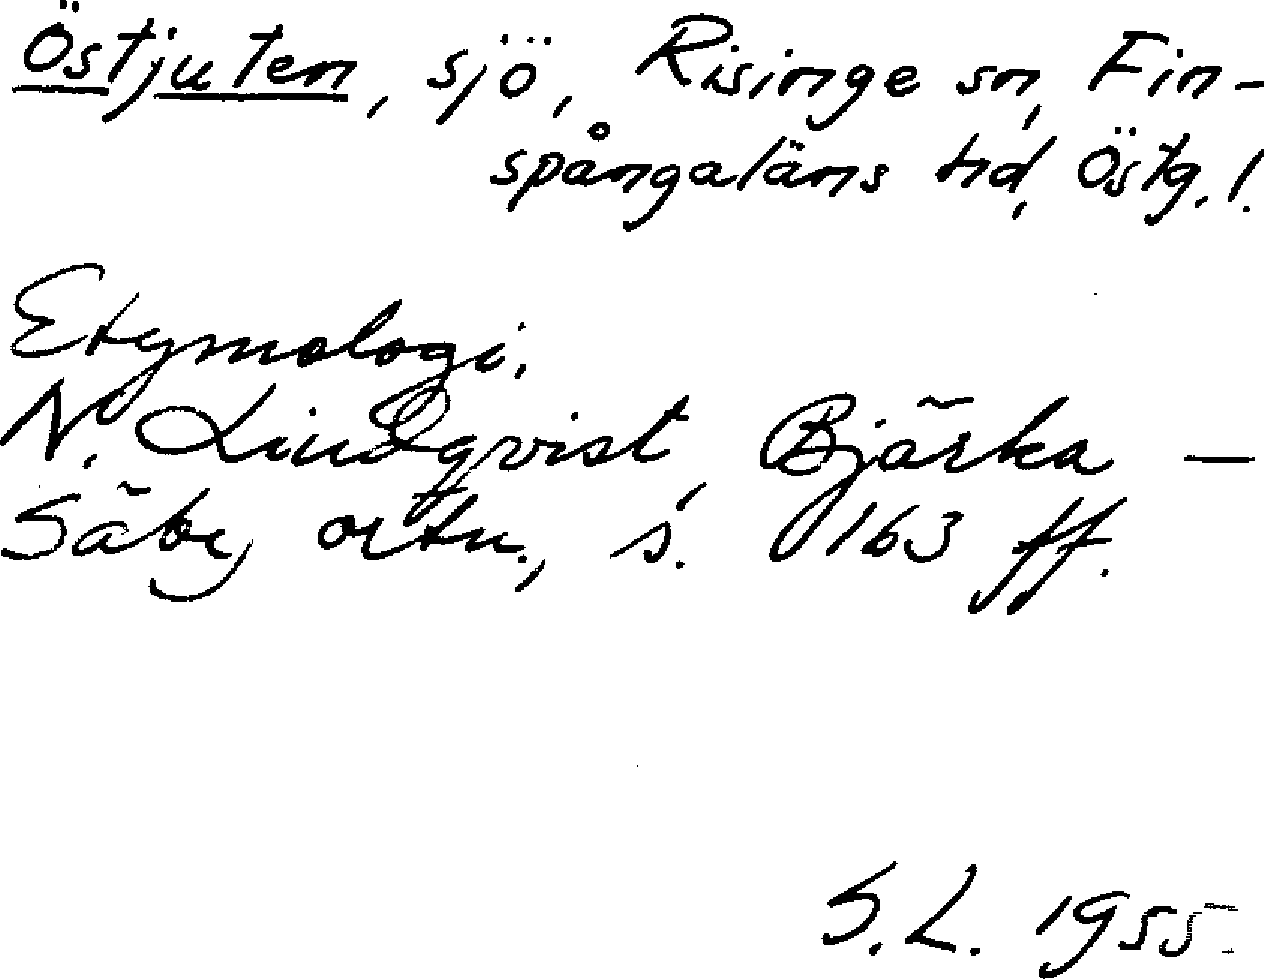 Östjuten, sjö, Risinge sn, Fin-
spångaläns hd, Östg. l.
Etymologi.
N. Lindqvist, Bjärka –
Säby ortn., s. 163 ff.
S. L. 1955.